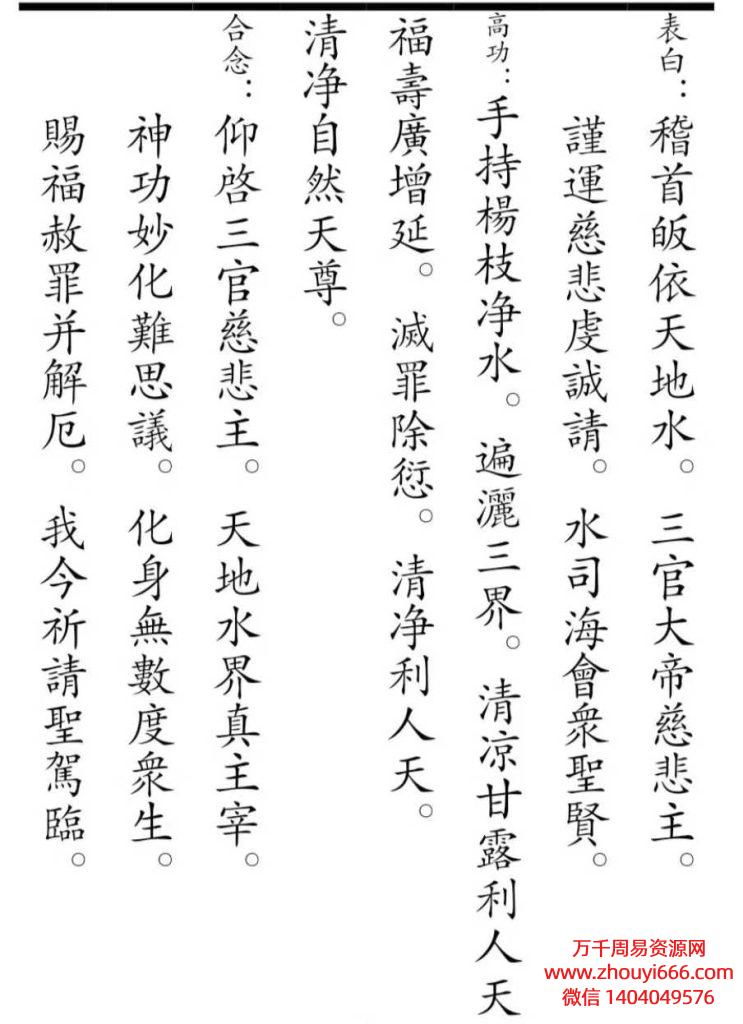 表白：稽首皈依天地水。三官大帝慈悲主。
謹運慈悲虔誠請。水司海會衆聖賢。
高功：手持楊枝净水。遍灑三界。清凉甘露利人天
福壽廣增延。滅罪除愆。清净利人天。
清净自然天尊。
合念：仰啓三官慈悲主。天地水界真主宰。
神功妙化難思議。化身無數度衆生。
賜福赦罪并解厄。我今祈請聖駕臨。
万千周易资源网
www.zhouyi666.com
微信 1404049576